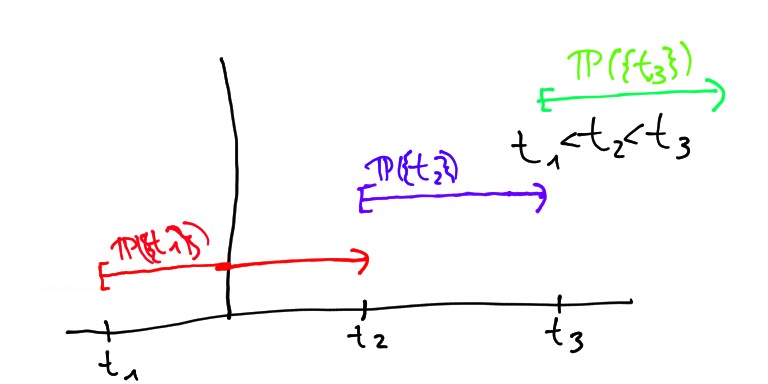 ℙ({t₃})
t₁<t₂<t₃
ℙ({t₂})
ℙ({t₁})
t₁
t₂
t₃